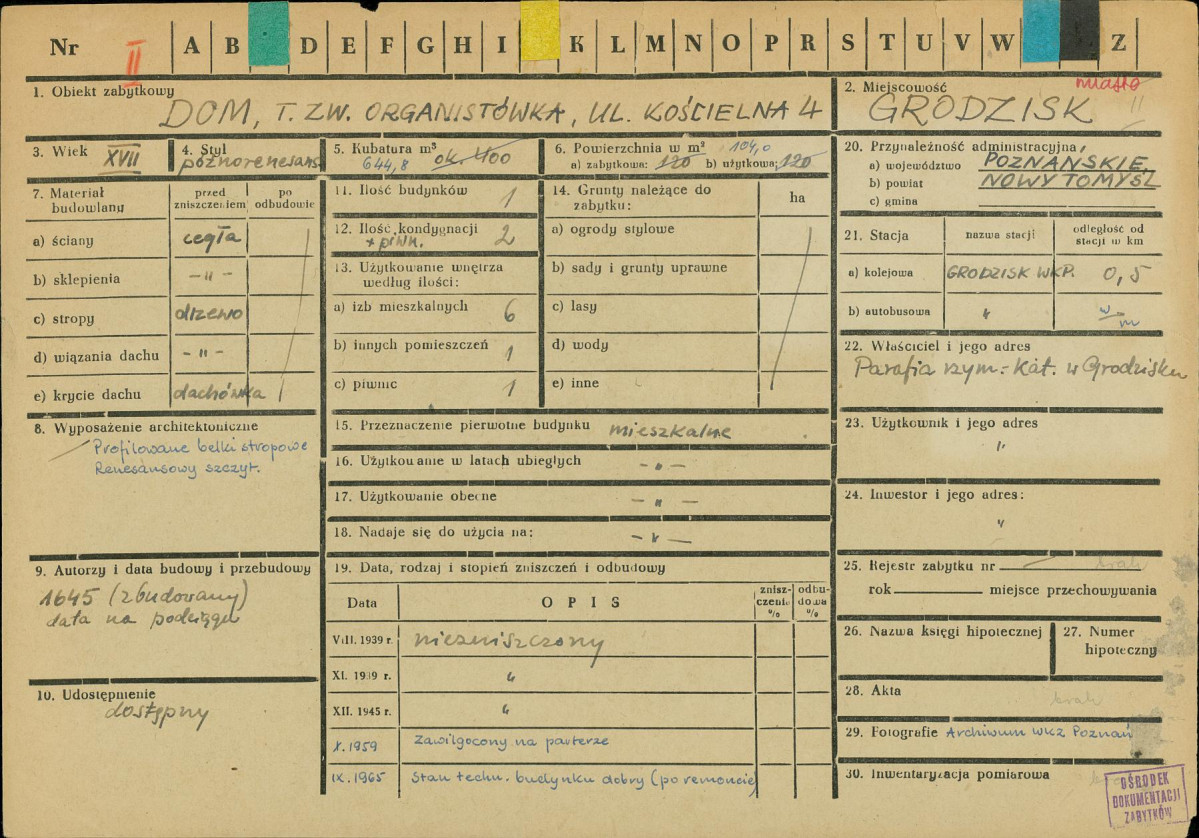 Nr II A B D E F G H I K L M N O P R S T U V W Z
1. Obiekt zabytkowy
DOM, T. ZW. ORGANISTÓWKA, UL. KOŚCIELNA 4
2. Miejscowość miasto
GRODZISK II
3. Wiek XVII
4. Styl
późnorenesans
5. Kubatura m³
644,8 ok. 400
6. Powierzchnia w m² 104,0
a) zabytkowa: 120 b) użytkowa: 120
20. Przynależność administracyjna
a) województwo POZNAŃSKIE,
b) powiat NOWY TOMYŚL
c) gmina
7. Materiał budowlany
przed zniszczeniem
po odbudowie
a) ściany cegła
b) sklepienia -"-
c) stropy drzewo
d) wiązania dachu -"-
e) krycie dachu dachówka
11. Ilość budynków 1
12. Ilość kondygnacji 2
+ piwn.
13. Użytkowanie wnętrza
według ilości:
a) izb mieszkalnych 6
b) innych pomieszczeń 1
c) piwnic 1
14. Grunty należące do
zabytku:
ha
a) ogrody stylowe
b) sady i grunty uprawne
c) lasy
d) wody
e) inne
21. Stacja
nazwa stacji
odległość od
stacji w km
a) kolejowa GRODZISK WKP. 0,5
b) autobusowa " w m
22. Właściciel i jego adres
Parafia rzym.-Kat. w Grodzisku
8. Wyposażenie architektoniczne
Profilowane belki stropowe
Renesansowy szczyt.
15. Przeznaczenie pierwotne budynku mieszkalne
16. Użytkowanie w latach ubiegłych -"-
17. Użytkowanie obecne -"-
18. Nadaje się do użycia na: -"-
23. Użytkownik i jego adres
"
24. Inwestor i jego adres:
"
9. Autorzy i data budowy i przebudowy
1645 (zbudowany)
data na podciągu
10. Udostępnienie
dostępny
19. Data, rodzaj i stopień zniszczeń i odbudowy
Data
OPIS
znisz-
czenie
%
odbu-
dowa
%
VIII. 1939 r. niezniszczony
XI. 1939 r. "
XII. 1945 r. "
X. 1959 Zawilgocony na parterze
IX. 1965 Stan techn. budynku dobry (po remoncie)
25. Rejestr zabytku nr brak
rok miejsce przechowywania
26. Nazwa księgi hipotecznej
27. Numer
hipoteczny
28. Akta brak
29. Fotografie Archiwum WKZ Poznań
30. Inwentaryzacja pomiarowa
OŚRODEK
DOKUMENTACJI
ZABYTKÓW